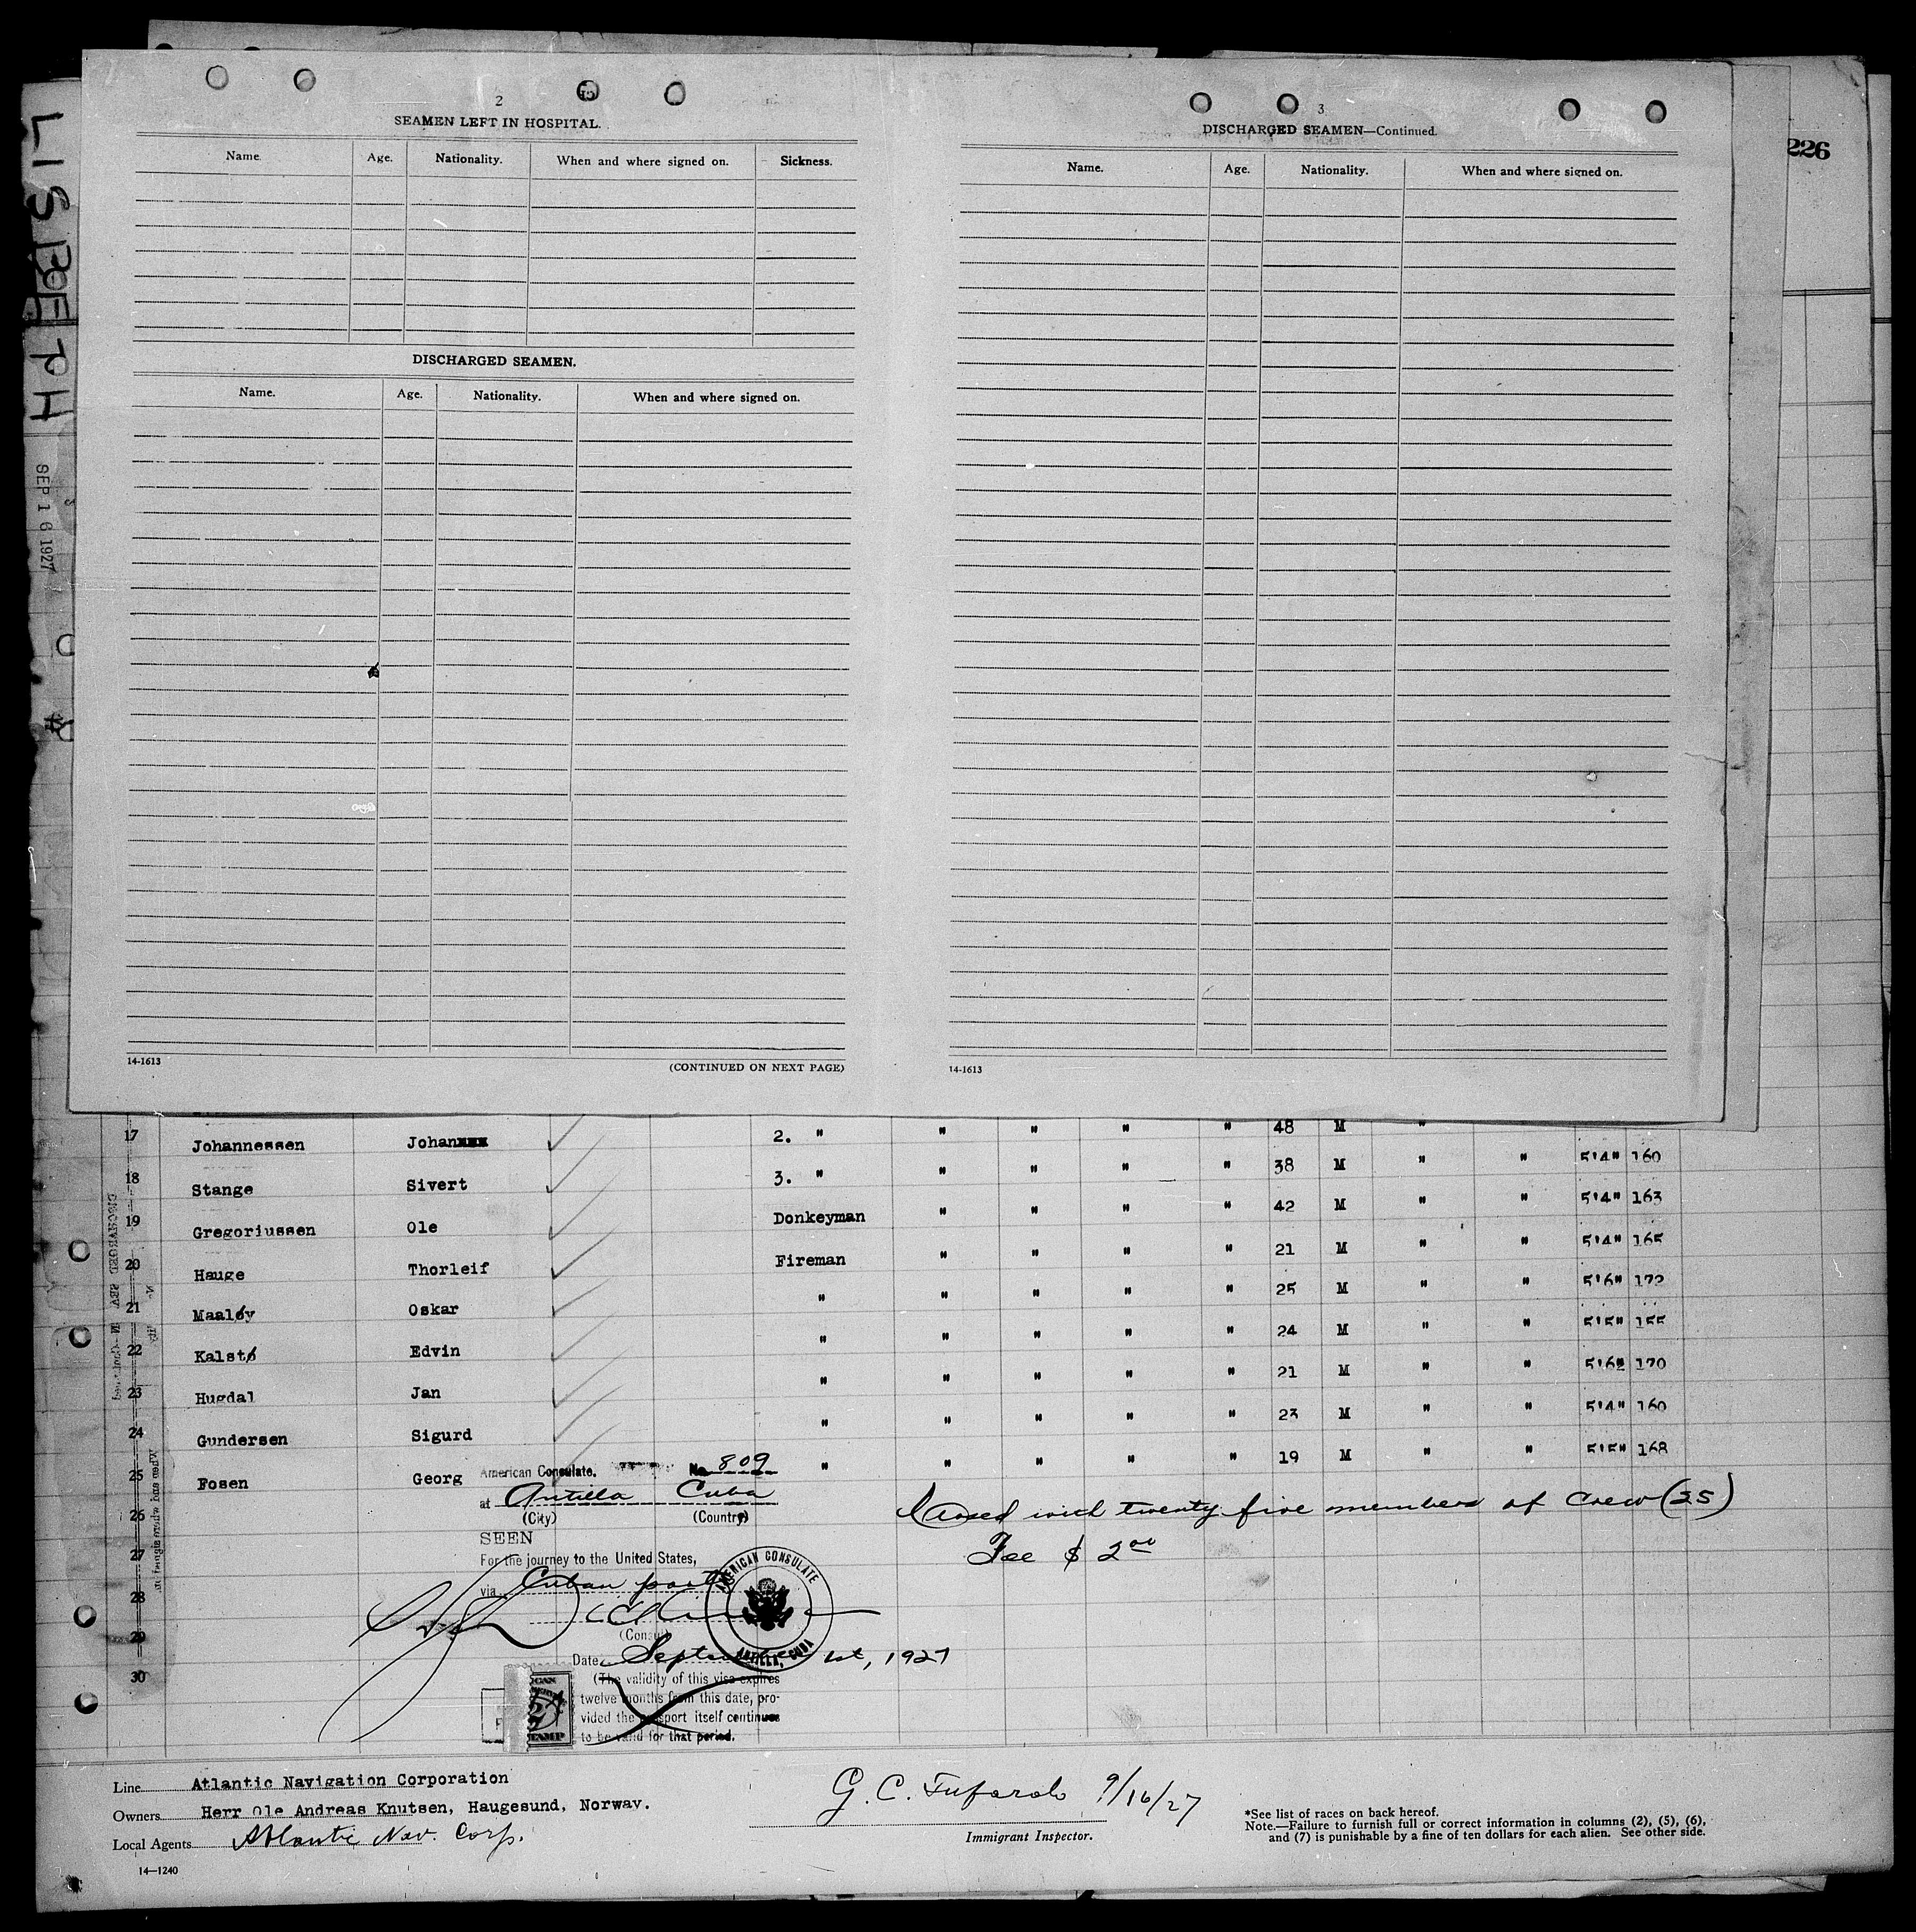 226
LISBETH
SEP 16 1927
2
SEAMEN LEFT IN HOSPITAL.
Name. Age. Nationality. When and where signed on. Sickness.
DISCHARGED SEAMEN.
Name. Age. Nationality. When and where signed on.
14-1613
(CONTINUED ON NEXT PAGE)
3
DISCHARGED SEAMEN—Continued.
Name. Age. Nationality. When and where signed on.
14-1613
17 Johannessen Johan 2. " " " " " 48 M "
18 Stange Sivert 3. " " " " " 38 M " " 5'4" 160
19 Gregoriussen Ole Donkeyman " " " " 42 M " " 5'4" 163
20 Hauge Thorleif Fireman " " " " 21 M " " 5'4" 165
21 Maaløy Oskar " " " " " 25 M " " 5'6" 172
22 Kalstø Edvin " " " " " 24 M " " 5'5" 155
23 Hugdal Jan " " " " " 21 M " " 5'6" 170
24 Gundersen Sigurd " " " " " 23 M " " 5'4" 160
25 Fosen Georg " " " " " 19 M " " 5'5" 168
26
27
28
29
30
American Consulate. No. 809
at Antilla Cuba
(City) (Country)
SEEN
For the journey to the United States,
via Cuban ports
(Consul)
Date September 1st, 1927
(The validity of this visa expires
twelve months from this date, pro-
vided the passport itself continues
to be valid for that period.
AMERICAN CONSULATE
ANTILLA, CUBA
2
STAMP
Closed with twenty five members of Crew (25)
Fee $ 2.00
Line Atlantic Navigation Corporation
Owners Herr Ole Andreas Knutsen, Haugesund, Norway.
Local Agents Atlantic Nav. Corp.
14—1240
G. C. Tufarolo 9/16/27
Immigrant Inspector.
*See list of races on back hereof.
Note.—Failure to furnish full or correct information in columns (2), (5), (6),
and (7) is punishable by a fine of ten dollars for each alien. See other side.